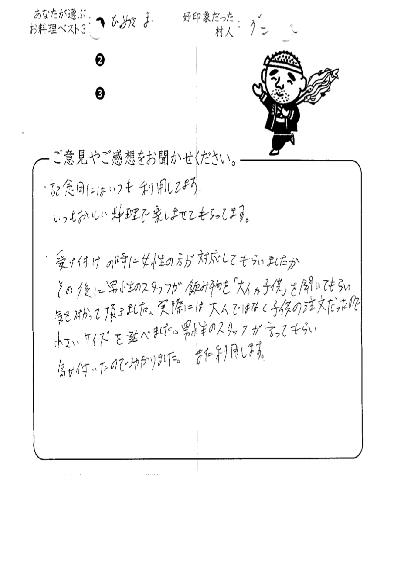 あなたが選ぶ
お料理ベスト3:
好印象だった
村人:
❷
❸
ご意見やご感想をお聞かせください。
・記念日にはいつも利用してます
いつもおいしい料理で楽しませてもらってます。
・受け付けの時に女性の方が対応してもらいましたが
その後に男性のスタッフが 飲み物を「大人か子供」を聞いてもらい
気を使って頂きました。実際には大人ではなく子供の注文だったので
小さいサイズを選べました。男性のスタッフが言ってもらい
気が付いたので助かりました。また利用します。